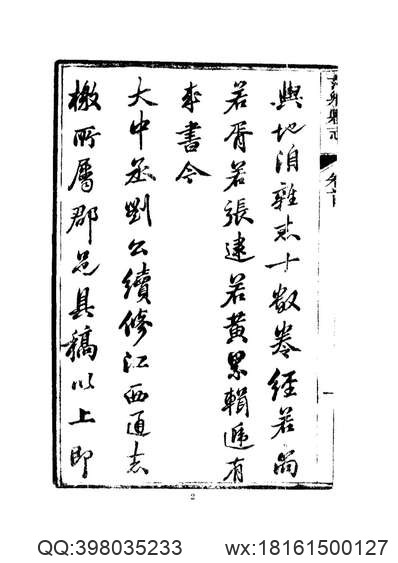 輿地洎雜志十數卷經若尚
若胥若張逮若黃累輯遞有
成書今
大中丞劉公續修江西通志
檄所屬郡邑具稿以上即
縣志
卷首
一
2
QQ:398035233
wx:18161500127